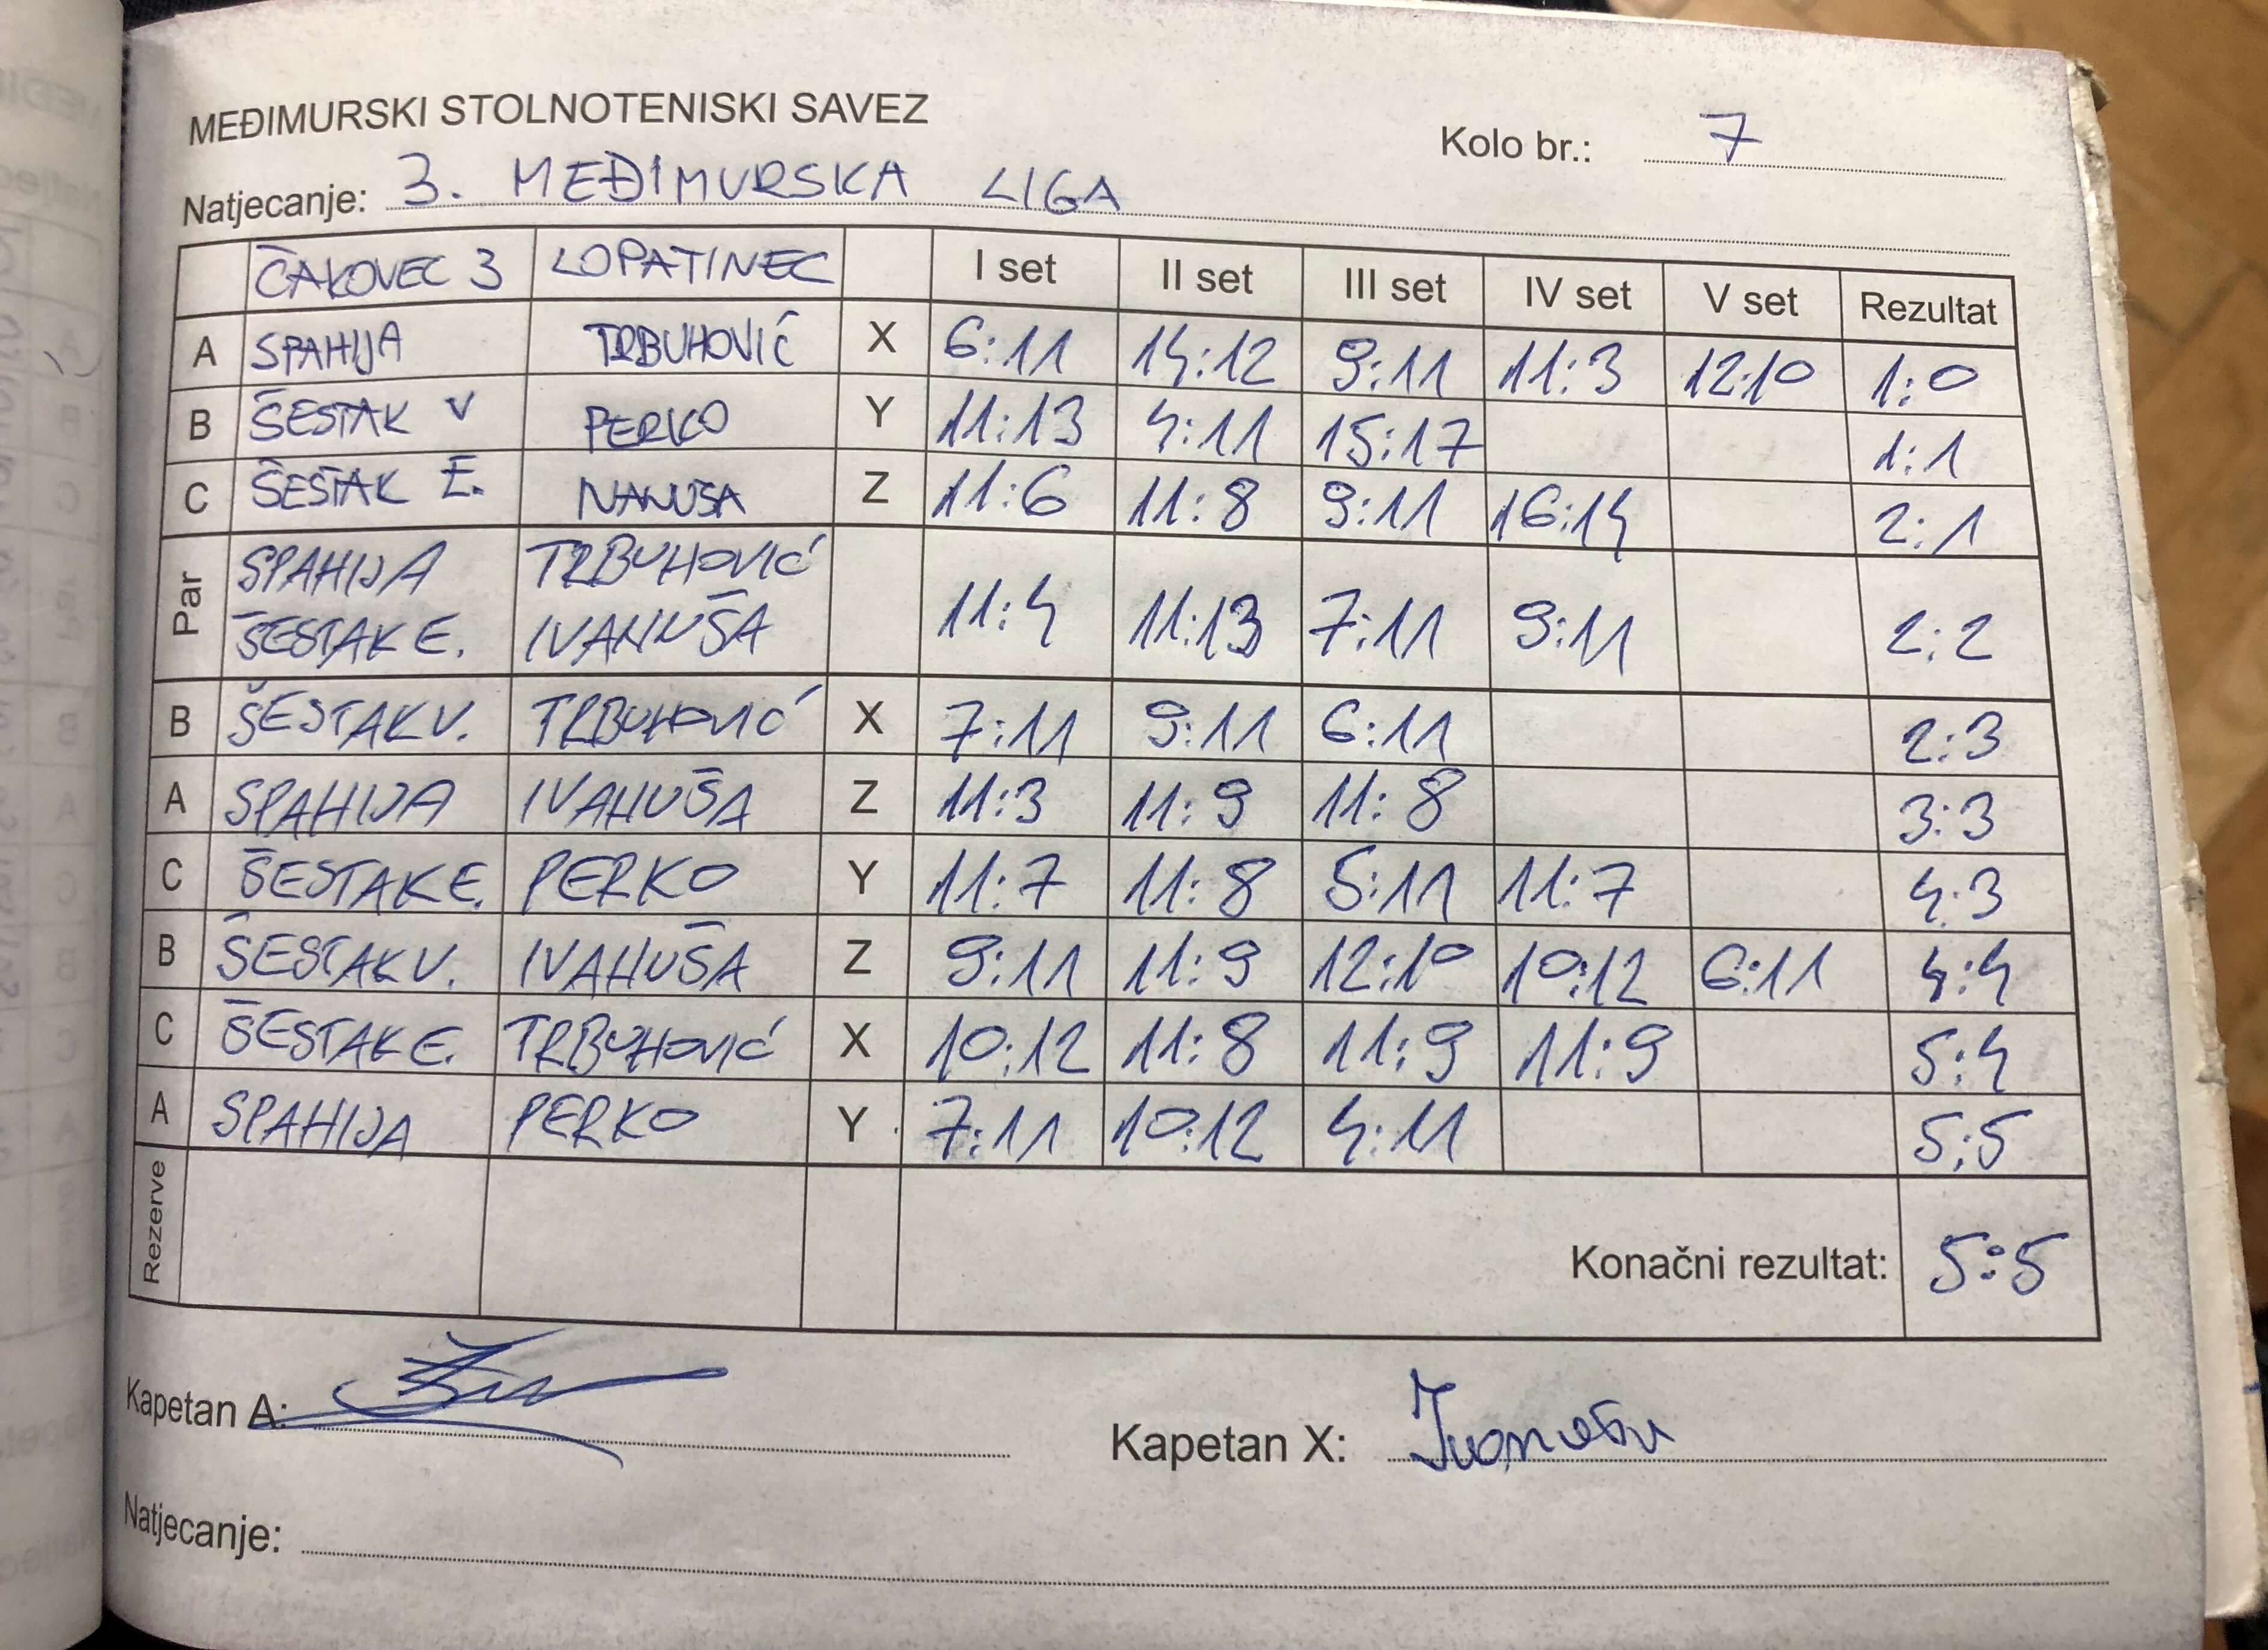 MEĐIMURSKI STOLNOTENISKI SAVEZ
Kolo br.: 7
Natjecanje: 3. MEĐIMURSKA LIGA
ČAKOVEC 3 LOPATINEC I set II set III set IV set V set Rezultat
A SPAHIJA TRBUHOVIĆ X 6:11 14:12 9:11 11:3 12:10 1:0
B ŠESTAK V PERKO Y 11:13 4:11 15:17 1:1
C ŠESTAK E. Z 11:6 11:8 9:11 16:14 2:1
Par SPAHIJA TRBUHOVIĆ
ŠESTAK E. IVANUŠA 11:4 11:13 7:11 9:11 2:2
B ŠESTAK V. TRBUHOVIĆ X 7:11 9:11 6:11 2:3
A SPAHIJA IVANUŠA Z 11:3 11:9 11:8 3:3
C ŠESTAK E. PERKO Y 11:7 11:8 5:11 11:7 4:3
B ŠESTAK V. IVANUŠA Z 9:11 11:9 12:10 10:12 6:11 4:4
C ŠESTAK E. TRBUHOVIĆ X 10:12 11:8 11:9 11:9 5:4
A SPAHIJA PERKO Y 7:11 10:12 4:11 5:5
Rezerve Konačni rezultat: 5:5
Kapetan A:
Kapetan X:
Natjecanje: